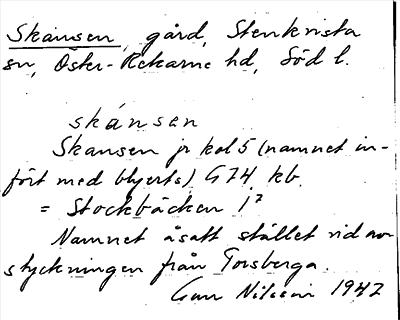 Skansen, gård, Stenkvista
sn, Öster-Rekarne hd, Söd l.
skánsen
Skansen jr kol 5 (namnet in-
fört med blyerts) G74 kb.
= Stockbäcken 1²
Namnet åsatt stället vid av-
styckningen från Torsberga.
Gun Nilsson 1942